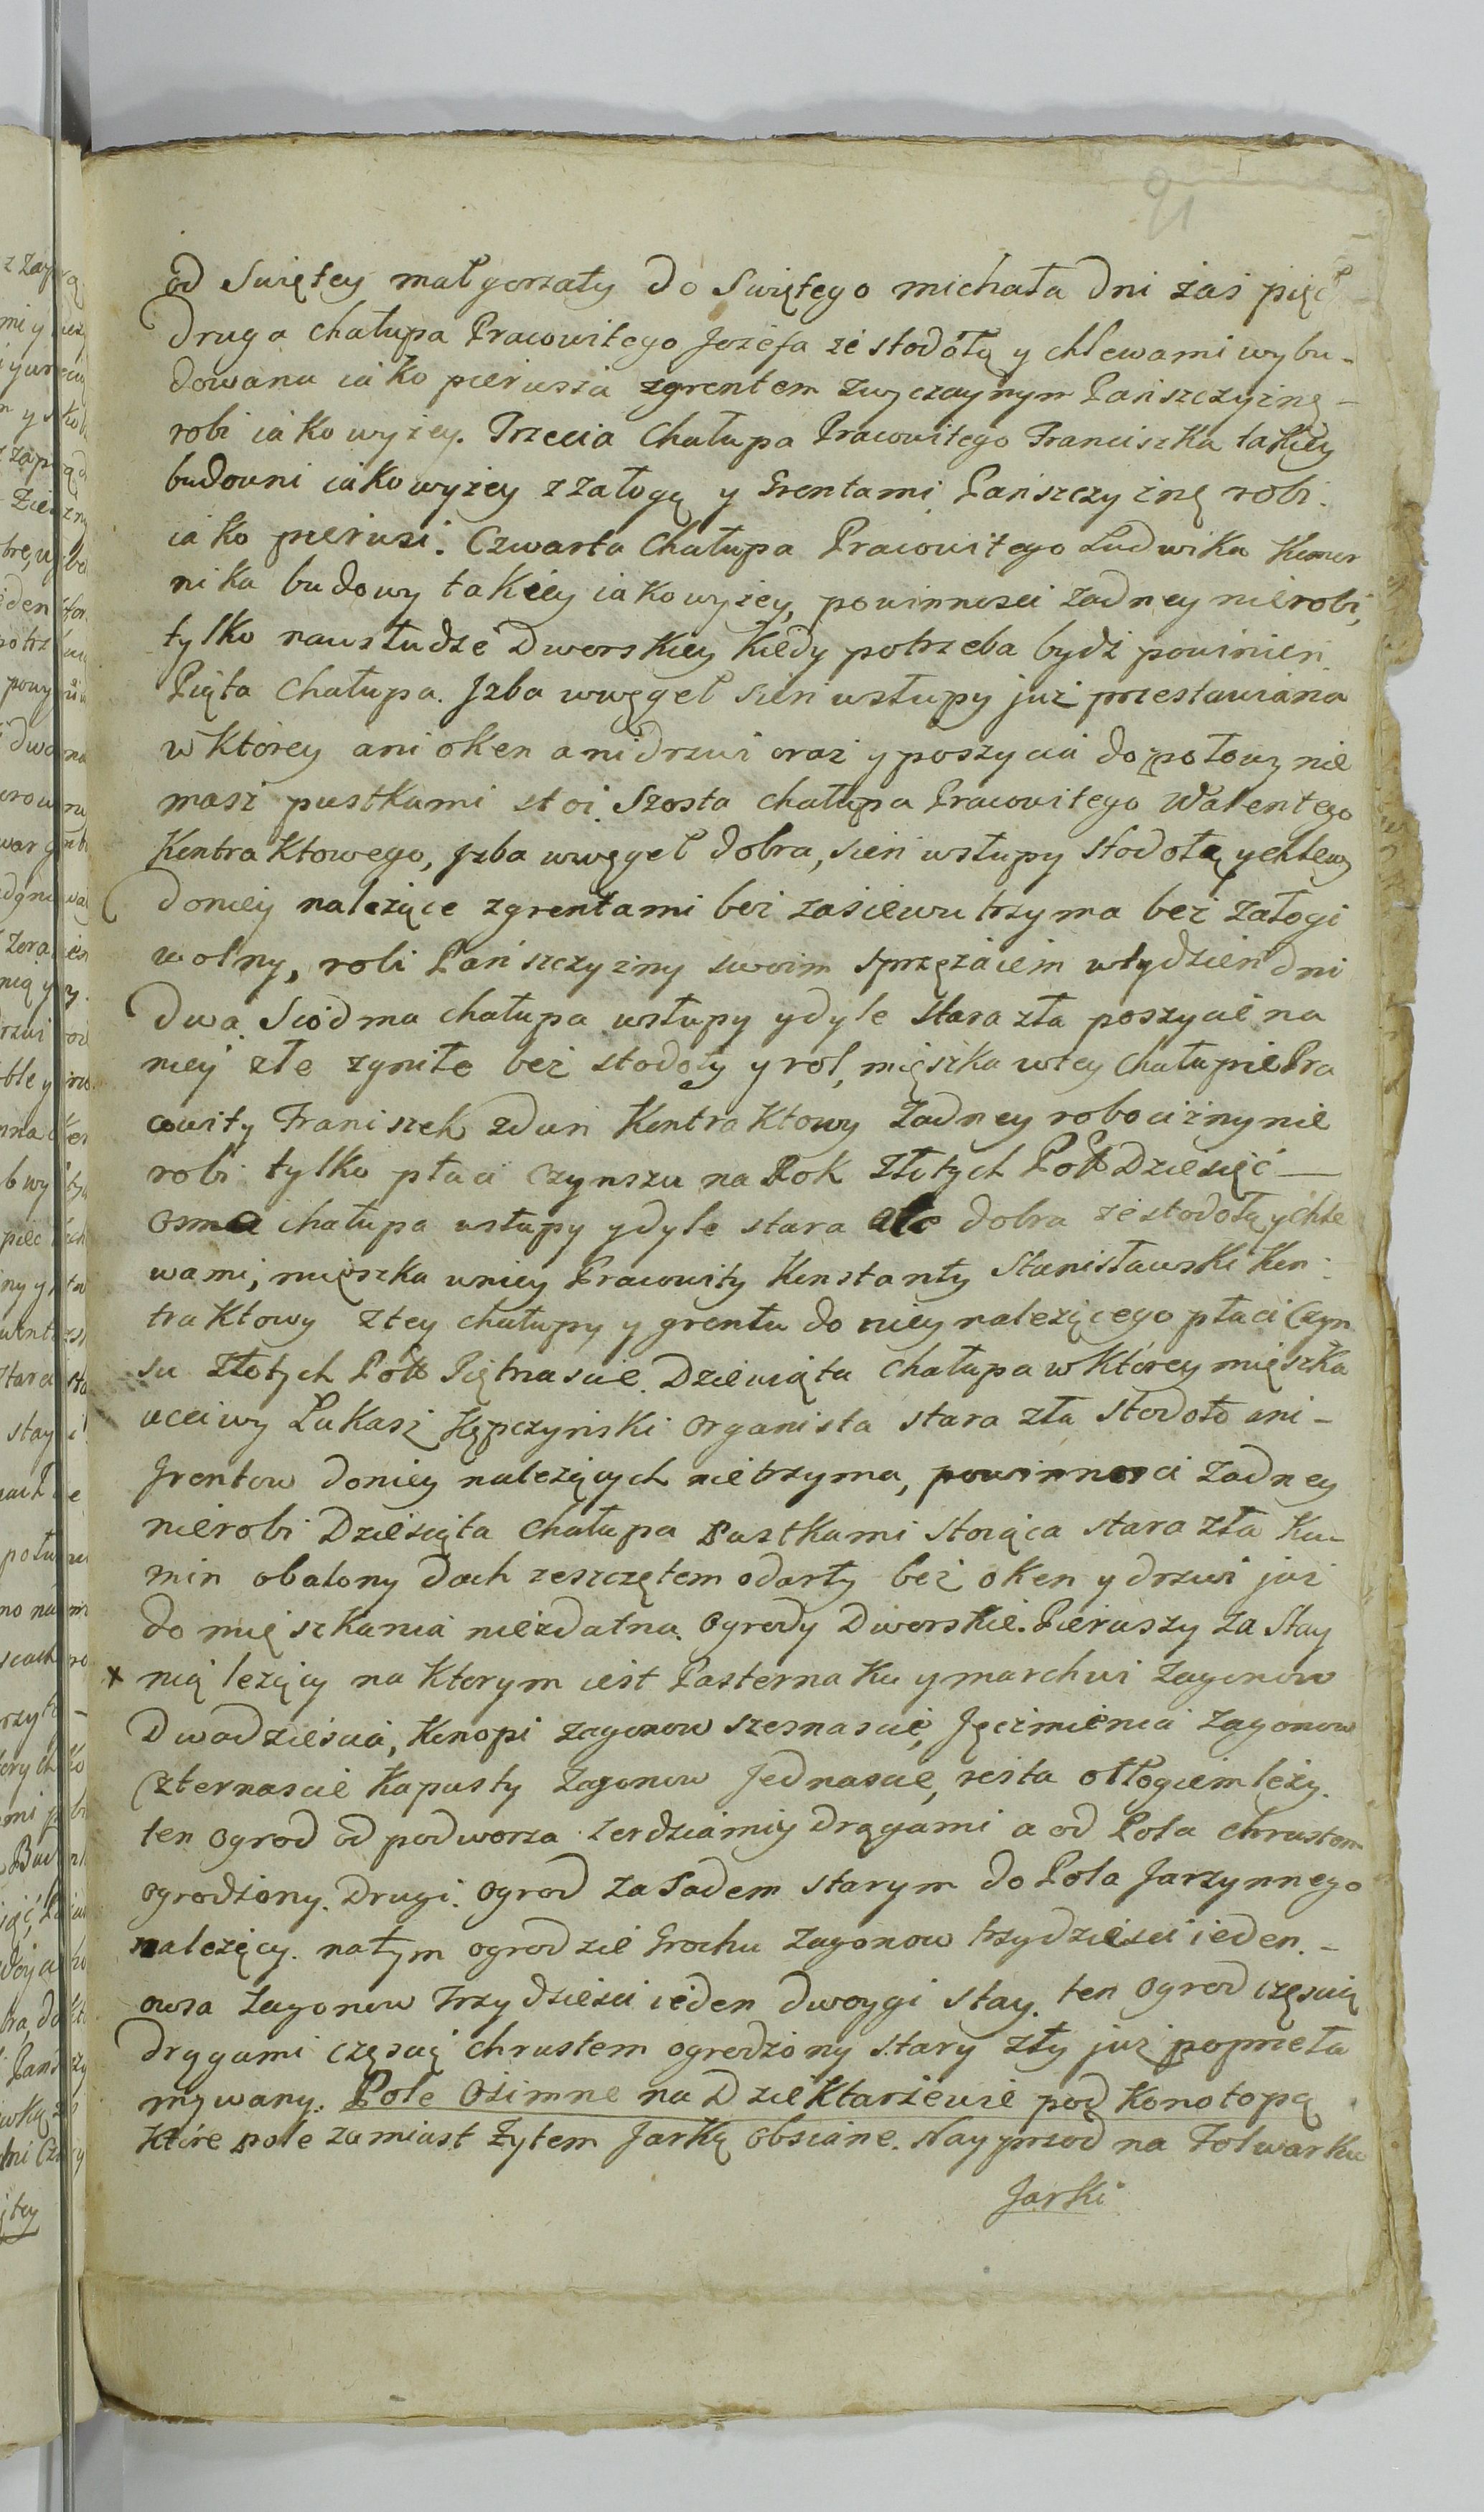 91
od Swiętey małgorzaty do Swiętego michała dni zaś pięć
Druga chałupa Pracowitego Jozefa ze stodołą y chlewami wybu-
dowana iako pierusza zgrentem zwyczaynym Pańszczyznę -
robi iako wyzey. Trzecia Chałupa Pracowitego Franciszka takiey
budowni iako wyzey z załogą y Grentami Pańszczyznę robi.
iako pierusi. Czwarta Chałupa Pracowitego Ludwika Komor
nika budowy takiey iako wyzey, powinnosci zadney nierobi,
tylko nawsłudze Dworskiey kiedy potrzeba bydź powinien.
Piąta Chałupa. Jzba wwęgeł sień wsłupy już przestawiana
w ktorey ani oken ani drzwi oraz y poszycia do połowy nie
masz pustkami stoi. Szosta chałupa Pracowitego Walentego
Kontraktowego, jzba wwęgeł dobra, sień wsłupy stodołą y chlewy
doniey nalezące zgrentami bez zasiewu trzyma bez załogi
wolny, robi Pańszczyzny swoim sprzęzaiem wtydzień dni
Dwa. Siodma chałupa wsłupy ydyle stara zła poszycie na
niey złe zgniłe bez stodoły y rol, mięszka wtey Chałupie Pra
cowity Franiszek zdun Kontraktowy zadney robocizny nie
robi tylko płaci Czynszu na Rok Złotych Pol Dziesięć —
osma chałupa wsłupy ydyle stara ale dobra ze stodołą ychle
wami, mięszka wniey Pracowity Konstanty Stanisławski Kon
traktowy Ztey chałupy y grentu do niey nalezącego płaci Czyn
su Złotych Pol Piętnascie. Dziewiąta Chałupa w ktorey mięszka
uczciwy Łukasz Kępczyński organista stara zła stodoło ani -
Grentow doniey nalezących nietrzyma, powinnosci zadney
nierobi Dziesiąta Chałupa Pustkami Stoiąca stara zła Ku-
min obalony dach zeszczętem odarty bez oken y drzwi już
do mięszkania niezdatna. Ogrody Dworskie. Pierwszy za Stay
x nią lezący na ktorym iest Pasternaku y marchwi zagonow
Dwadziescia, Konopi zagonow szesnascie, Jęczmienia zagonow
Czternascie Kapusty zagonow Jednascie, resta otłogiem lezy.
ten ogrod od podworza zerdziamiy drągami a od Pola chrustem
ogrodzony. Drugi. ogrod za Sadem starym do Pola Jarzynnego
nalezący. natym ogrodzie Grochu zagonow trzydziesci ieden. -
owsa zagonow Trzydziesci ieden dwoygi stay. ten ogrod częscią
drągami częscią chrustem ogrodzony stary zły już popreta
mywany. Pole Ozimne na Dziektarzewie pod Konotopą
Które pole zamiast Zytem Jarką obsiane. Nayprzod na Folwarku
Jarki